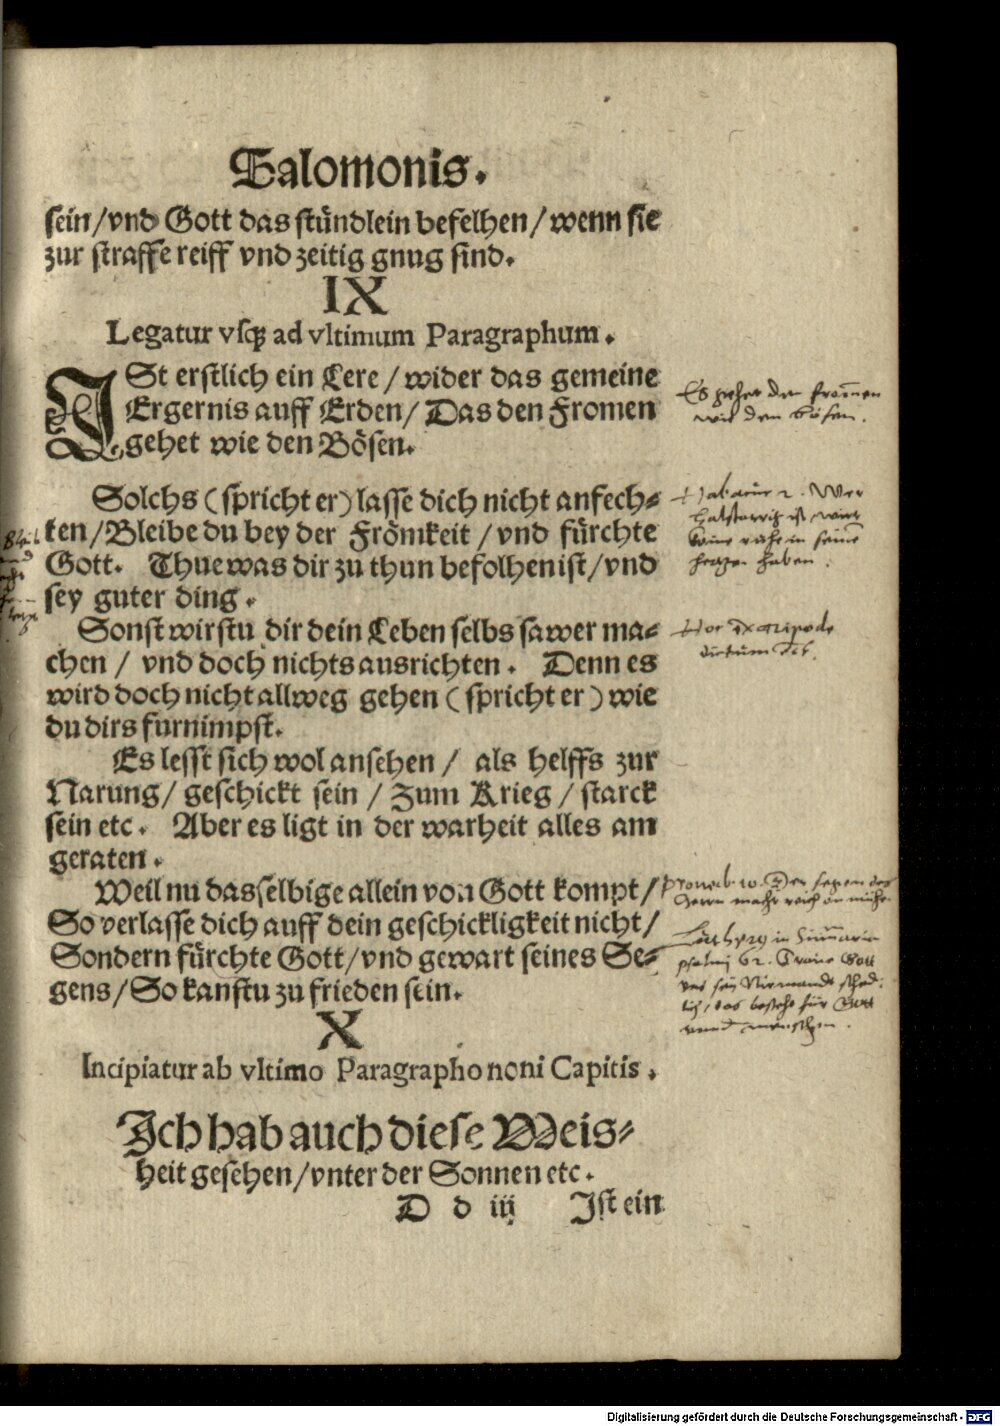 Salomonis.
sein/vnd Gott das stündlein befelhen/wenn sie
zur straffe reiff vnd zeitig gnug sind.
IX
Legatur vsq; ad vltimum Paragraphum.
ISt erstlich ein Lere/wider das gemeine
Ergernis auff Erden/Das den Fromen
gehet wie den Bösen.
Es gehet den frommen
wie den bösen.
Solchs (spricht er) lasse dich nicht anfech-
ten/Bleibe du bey der Frömkeit/vnd fürchte
Gott. Thue was dir zu thun befolhen ist/vnd
sey guter ding.
Habacuc 2. Wer
halstarrig ist, wirt
keine ruhe in seinem
hertzen haben.
Sonst wirstu dir dein Leben selbs sawer ma-
chen/vnd doch nichts ausrichten. Denn es
wird doch nicht allweg gehen (spricht er) wie
du dirs furnimpst.
Hoc ex tripode
dictum
Es lesst sich wol ansehen/als helffs zur
Narung/geschickt sein/Zum Krieg/starck
sein etc. Aber es ligt in der warheit alles am
geraten.
Weil nu dasselbige allein von Gott kompt/
So verlasse dich auff dein geschickligkeit nicht/
Sondern fürchte Gott/vnd gewart seines Se-
gens/So kanstu zu frieden sein.
Proverb. 10. Der segen des
Herrn macht reich on mühe
in Summarie
psalmi 62. Trawe Gott
Niemandt sched-
lich, das besteht für Gott
vnnd menschen.
X
Incipiatur ab vltimo Paragrapho noni Capitis.
Ich hab auch diese Weis-
heit gesehen/vnter der Sonnen etc.
D d iij Ist ein
Digitalisierung gefördert durch die Deutsche Forschungsgemeinschaft - DFG